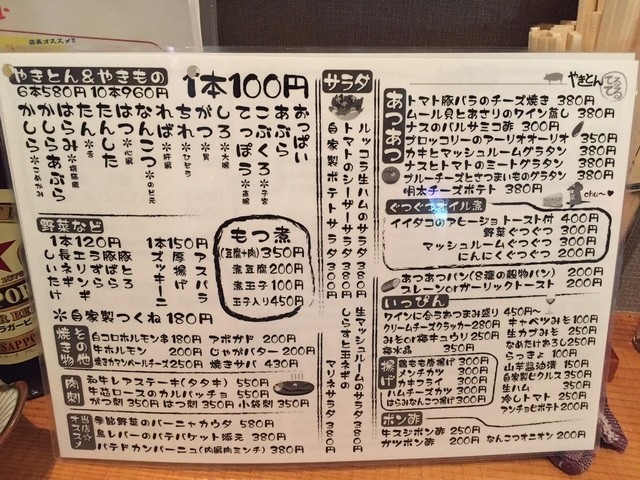 店長オススメ!!
やきとん&やきもの 1本100円
6本580円 10本960円
かしら※こめかみ
かしらあぶら
はらみ※横隔膜
たん※舌
たんした
はつ※心臓
なんこつ※のど元
れば※肝臓
ちれ※ひぞう
がつ※胃
しろ※大腸
てっぽう※直腸
こぶくろ※子宮
あぶら
おっぱい
野菜など
1本120円
しいたけ
長ネギ
エリンギ
うずら
豚トマ
豚とろ
1本150円
ズッキーニ
厚揚げ
アスパラ
※自家製つくね180円
もつ煮
(豆腐+肉)350円
煮豆腐200円
煮玉子100円
玉子入り450円
その他焼き物
白コロホルモン串180円
牛ホルモン 200円
焼きカマンベールチーズ250円
アボカド 200円
じゃがバター 200円
焼きサバ 430円
肉刺
和牛レアステーキ(タタキ) 550円
牛芯ロースのカルパッチョ 550円
ガツ刺 350円 はつ刺 350円 小袋刺 350円
当店☆オススメ
季節野菜のバーニャカウダ 580円
鳥レバーのパテバケット添え 380円
パテドカンパーニュ(肉風肉ミンチ) 380円
サラダ
ルッコラ生ハムのサラダ 380円
トマトのシーザーサラダ 380円
自家製ポテトサラダ 300円
生マッシュルームのサラダ 380円
しらすと玉ネギの
マリネサラダ 380円
やきとん てるてる
あつあつ
トマト豚バラのチーズ焼き 380円
ムール貝とあさりのワイン蒸し 380円
ナスのバルサミコ酢 300円
ブロッコリーのアーリオオーリオ 350円
カキとマッシュルームグラタン 380円
ナスとトマトのミートグラタン 380円
ブルーチーズとさつまいものグラタン 380円
明太チーズポテト 380円
chu~♥
ぐつぐつオイル煮
イイダコのアヒージョトースト付 400円
野菜ぐつぐつ 300円
マッシュルームぐつぐつ 300円
にんにくぐつぐつ 200円
あつあつパン(8種の穀物パン) 200円
プレーンorガーリックトースト 200円
いっぴん
ワインに合うおつまみ盛り 450円~
クリームチーズクラッカー 280円
みそor梅キュウリ 250円
梅水晶 350円
キャベツみそ 100円
生カブみそ 250円
なめたけおろし 250円
らっきょ 100円
山芋醤油漬 350円
自家製ピクルス 350円
生ハム 350円
冷しトマト 250円
アンチョビポテト 200円
揚げ
鶏もも唐揚げ 300円
メンチカツ 300円
カキフライ 300円
ハムチーズカツ 300円
はらみなんこつ揚げ 300円
ポン酢
牛スジポン酢 250円
ガツポン酢 200円
なんこつオニオン 200円
SAPPORO